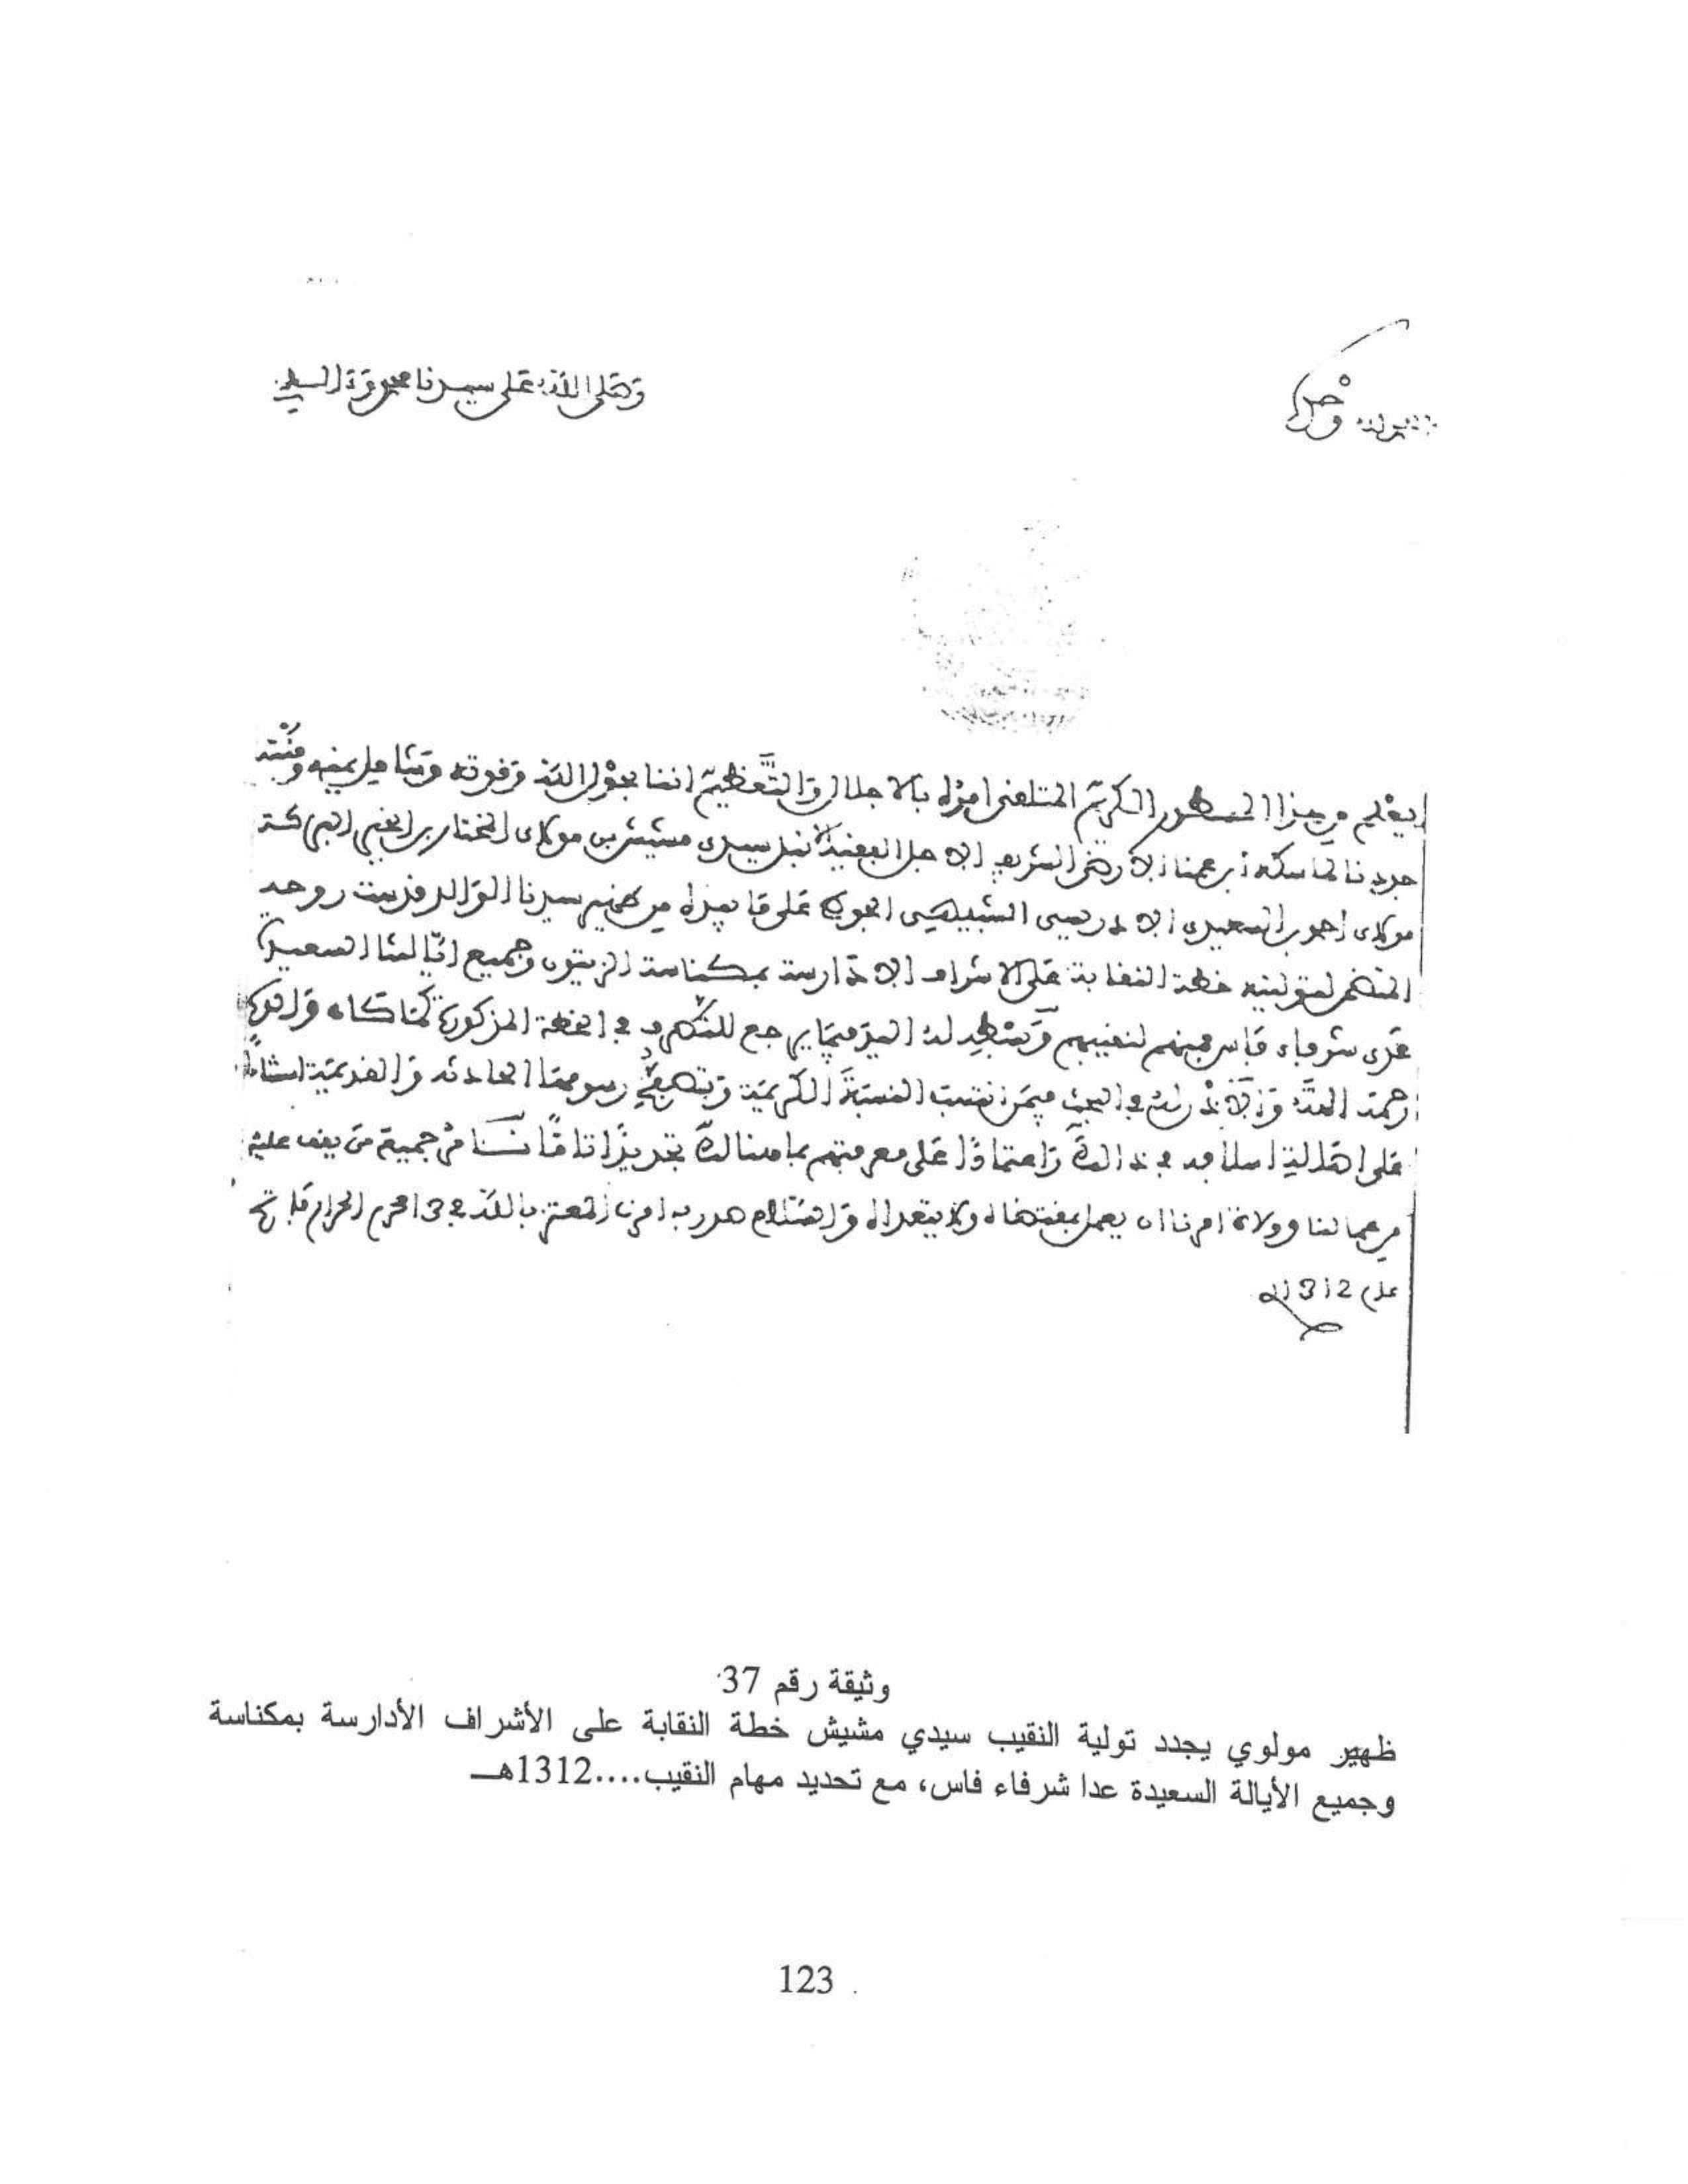 الحمد لله وحده
وصلى الله على سيدنا محمد وآله
يعلم من هذا المسطور الكريم المتلقى أمره بالإجلال والتعظيم أننا بحول الله وقوته وشامل يمنه ومنته
جددنا لماسكه ابن عمنا الأرضى الشريف الأجل الفقيه الأنبل سيدي مشيش بن مولاي المختار بن الغني البركة
مولاي السعيدي الادريسي الشبيهي الجوطي على ما بيده من ظهير سيدنا الوالد قدست روحه
المتضمن لتوليته خطة النقابة على الأشراف الأدارسة بمكناسة الزيتون وجميع ايالتنا السعيدة
عدى شرفاء فاس فمنهم لنقيبهم ونبسط له اليد فيما يرجع للتصرف في الخطة المذكورة كما كان
رحمة الله والإذن له في البحث فيمن انتسب النسبة الكريمة وتصفح رسومها الحادثة والقديمة
على اسلافه في ذلك واعتمادا على معرفتهم بما هنالك تجديدا تاما فنأمر جميع من يقف عليه
من عمالنا وولاة امرنا ان يعمل بمقتضاه ولا يتعداه والسلام صدر به امرنا المعتز بالله في 13 محرم الحرام فاتح
عام 1312
وثيقة رقم 37
ظهير مولوي يجدد تولية النقيب سيدي مشيش خطة النقابة على الأشراف الأدارسة بمكناسة
وجميع الأيالة السعيدة عدا شرفاء فاس، مع تحديد مهام النقيب....1312هـ
123